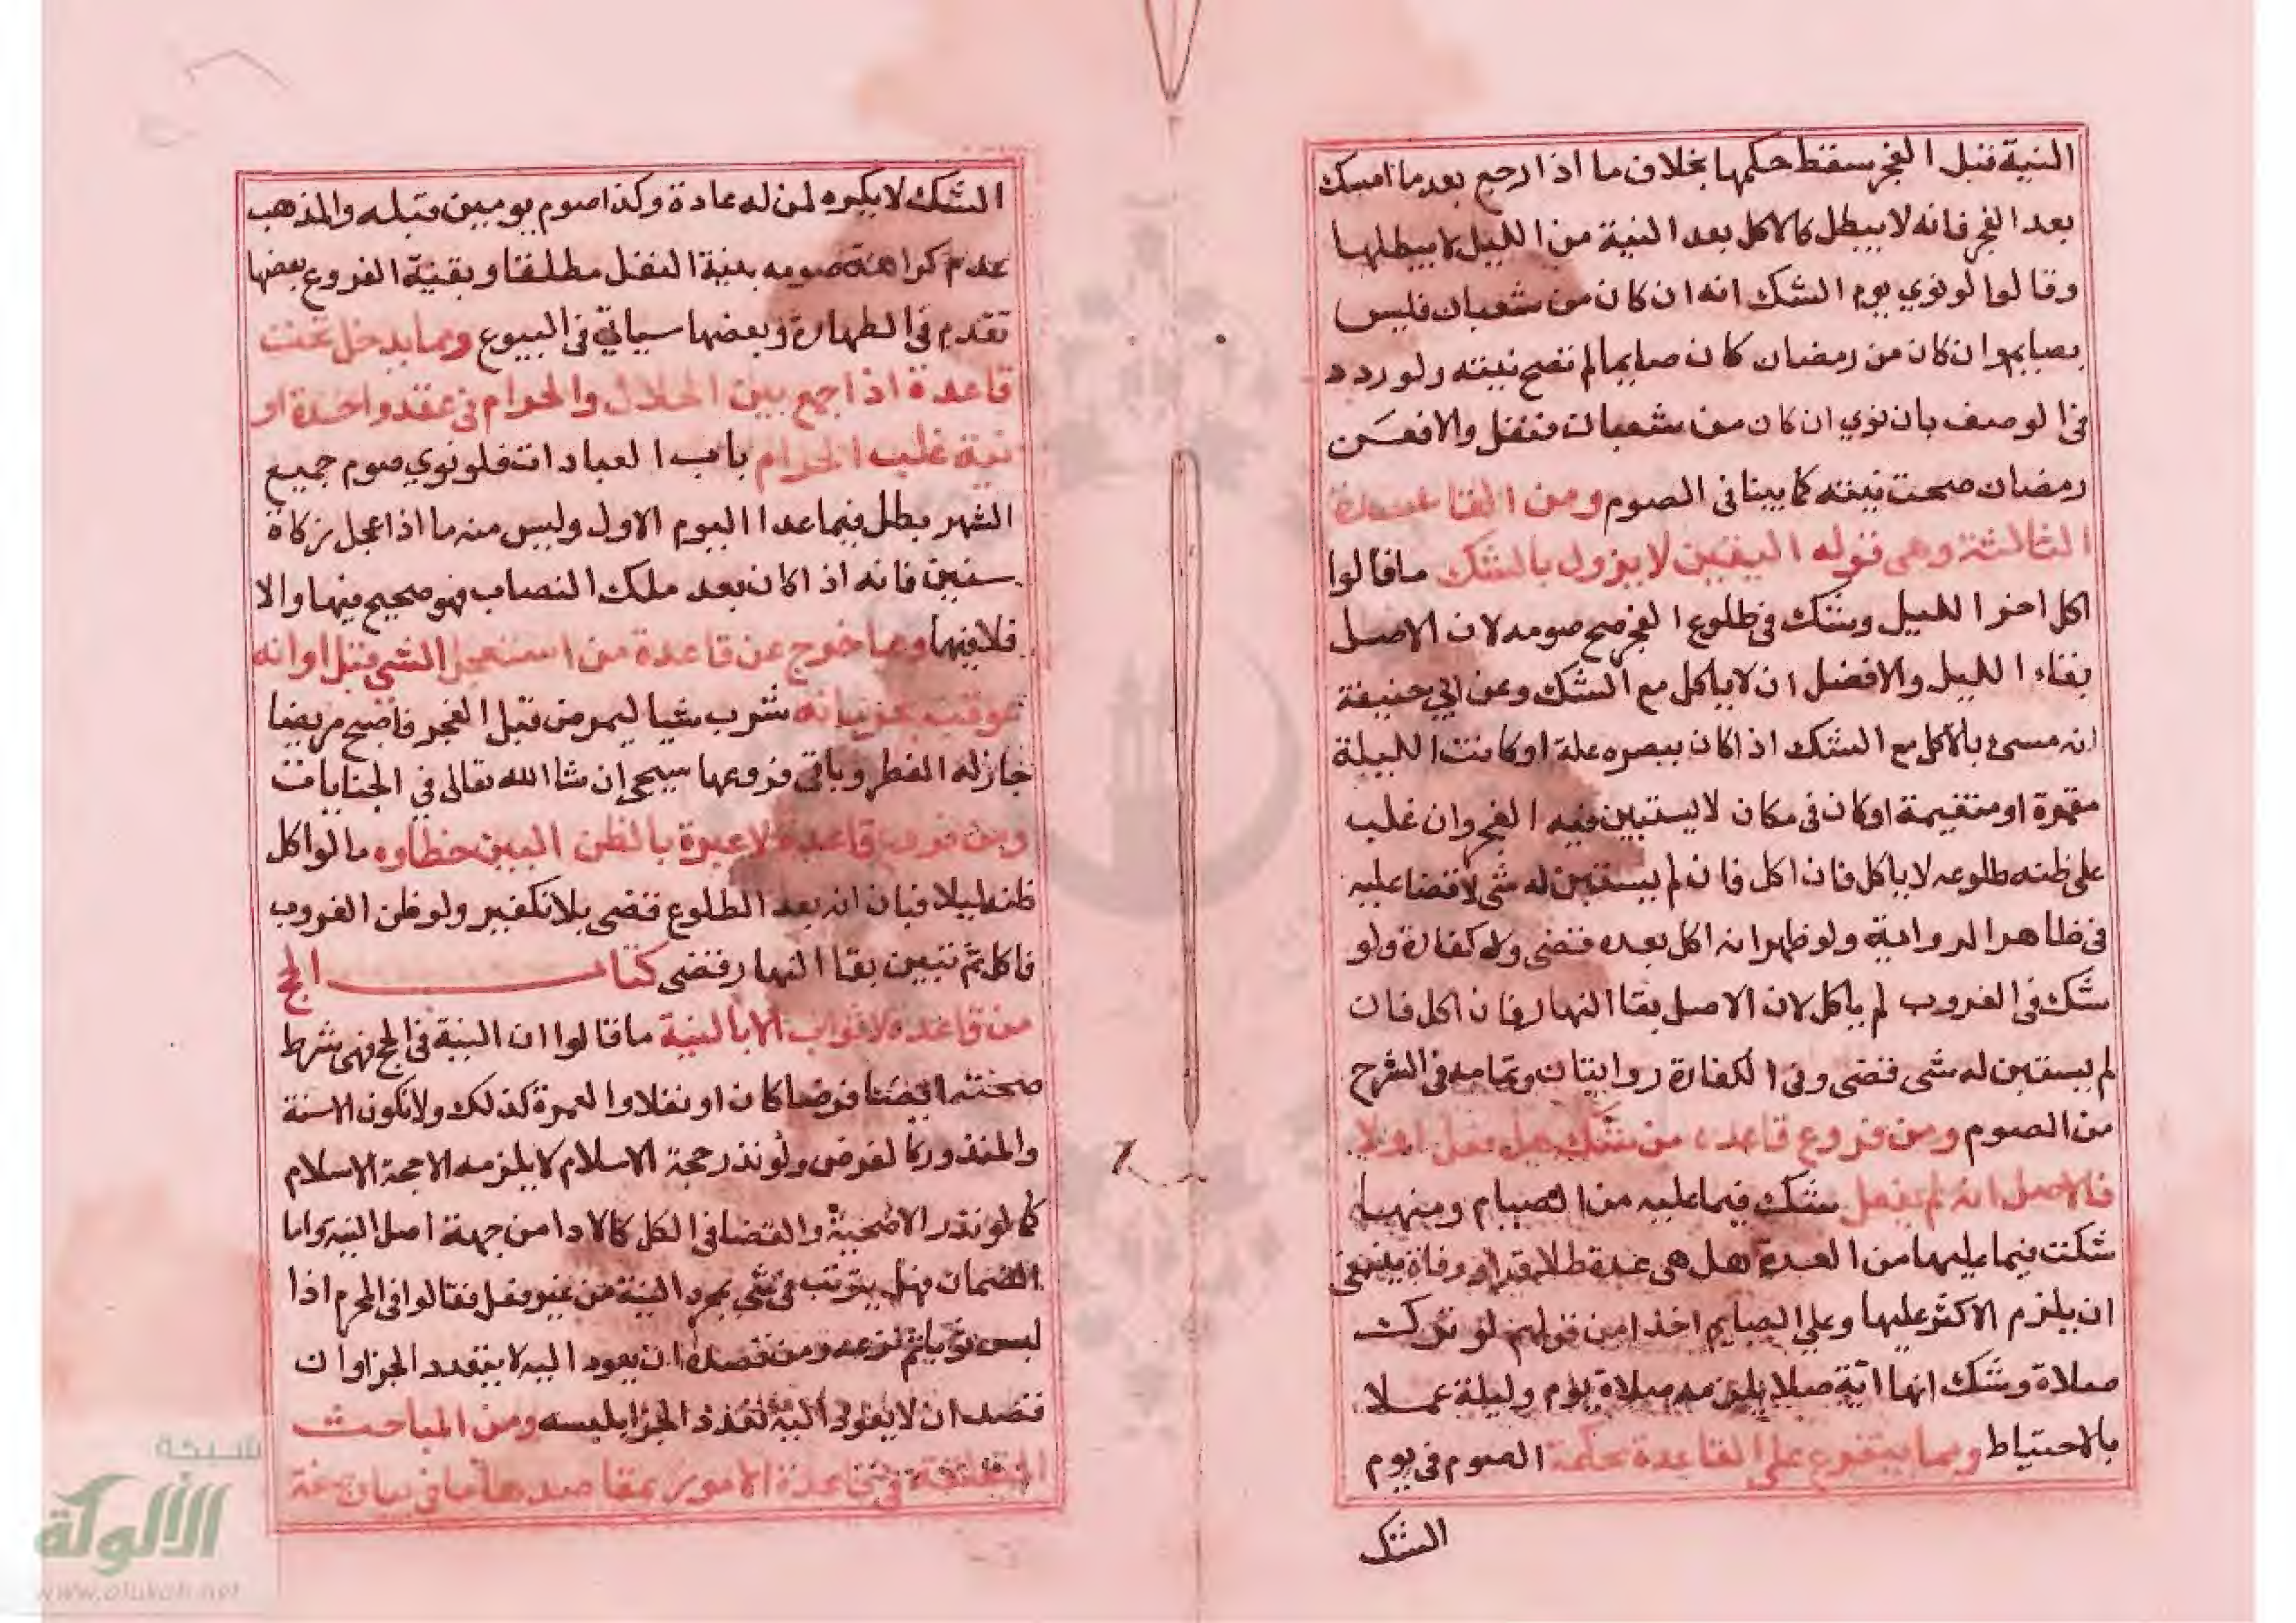 النية قبل الفجر سقط حكمها بخلاف ما اذا رجع بعد ما امسك
بعد الفجر فانه لا يبطل كالاكل بعد النية من الليل لا يبطلها
وقالوا لو نوي يوم الشك انه ان كان من شعبان فليس
بصايم وان كان من رمضان كان صايما لم تصح نيته ولو ردد
في الوصف بان نوي ان كان من شعبان فنفل والا فعن
رمضان صحت نيته كما بينا في الصوم ومن القاعدة
الثالثة وهي قوله اليقين لا يزول بالشك ما قالوا
اكل اخر الليل وشك في طلوع الفجر صح صومه لان الاصل
بقاء الليل والافضل ان لا ياكل مع الشك وعن ابي حنيفة
انه مسئ بالاكل مع الشك اذا كان ببصره علة او كانت الليلة
مقمرة او متغيمة او كان في مكان لا يستبين فيه الفجر وان غلب
على ظنه طلوعه لا ياكل فان اكل فان لم يستبن له شي لا قضا عليه
في ظاهر الرواية ولو ظهر انه اكل بعده قضي ولا كفارة ولو
شك في الغروب لم ياكل لان الاصل بقا النهار فان اكل فان
لم يستبن له شي قضي وفي الكفارة روايتان وتمامه في الشرح
من الصوم ومن فروع قاعدة من شك هل فعل او لا
فالاصل انه لم يفعل شك فيما عليه من الصيام ومنها
شكت فيما عليها من العدة هل هي عدة طلاق او وفاة ينبغي
ان يلزم الاكثر عليها وعلي الصايم اخذا من قولهم لو ترك
صلاة وشك انها اية صلاة يلزمه صلاة يوم وليلة عملا
بالاحتياط ومما يتفرع على القاعدة محكمة الصوم في يوم
الشك
الشك لا يكره لمن له عادة وكذا صوم يومين قبله والمذهب
عدم كراهة صومه بنية النفل مطلقا وبقية الفروع بعضها
تقدم في الطهارة وبعضها سياتي في البيوع ومما يدخل تحت
قاعدة اذا اجمع بين الحلال والحرام في عقد واحدة او
نية غلب الحرام باب العبادات فلو نوي صوم جميع
الشهر بطل فيما عدا اليوم الاول وليس منه ما اذا عجل زكاة
سنين فانه اذا كان بعد ملك النصاب فهو صحيح فيها والا
فلا فيها وما خرج عن قاعدة من استعجل الشي قبل اوانه
عوقب بحرمانه شرب شيا ليمرض قبل الفجر فاصبح مريضا
جاز له الفطر وباقي فروعها سيجي إن شا الله تعالى في الجنايات
ومن فروع قاعدة لا عبرة بالظن البين خطاوه ما لو اكل
ظنه ليلا فبان انه بعد الطلوع قضي بلا تكفير ولو ظن الغروب
فاكل ثم تبين بقا النهار قضي كتاب الحج
من قاعدة لا ثواب الا بالنية ما قالوا ان النية في الحج فهي شرط
صحته ايضا فرضا كان او نفلا والعمرة كذلك ولا تكون الا سنة
والمنذور كالفرض ولو نذر حجة الاسلام لا يلزمه الا حجة الاسلام
كما لو نذر الاضحية والقضا في الكل كالادا من جهة اصل النية واما
الضمان فهل يترتب في شي بمجرد النية من غير فعل فقالوا في المحرم اذا
لبس ثوبا ثم نزعه ومن قصده ان يعود اليه لا يتعدد الجزا وان
قصد ان لا يعود اليه تعدد الجزا بلبسه ومن المباحث
المتعلقة في قاعدة الامور بمقاصدها ما في بيان
شبكة
الألوكة
www.alukah.net